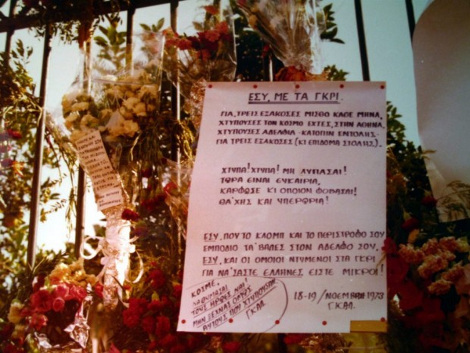 ΕΣΥ, ΜΕ ΤΑ ΓΚΡΙ.
ΓΙΑ ΤΡΕΙΣ ΕΞΑΚΟΣΕΣ ΜΙΣΘΟ ΚΑΘΕ ΜΗΝΑ,
ΧΤΥΠΟΥΣΕΣ ΤΟΝ ΚΟΣΜΟ ΕΧΤΕΣ, ΣΤΗΝ ΑΘΗΝΑ.
ΧΤΥΠΟΥΣΕΣ ΑΔΕΛΦΙΑ - ΚΑΤΟΠΙΝ ΕΝΤΟΛΗΣ -
ΓΙΑ ΤΡΕΙΣ ΕΞΑΚΟΣΕΣ (ΚΙ ΕΠΙΔΟΜΑ ΣΤΟΛΗΣ).
ΧΤΥΠΑ! ΧΤΥΠΑ! ΜΗ ΛΥΠΑΣΑΙ!
ΤΩΡΑ ΕΙΝΑΙ ΕΥΚΑΙΡΙΑ,
ΚΑΡΦΩΣΕ ΚΙ ΟΠΟΙΟΝ ΦΟΒΑΣΑΙ!
ΘΑ 'ΧΗΣ ΚΑΙ ΥΠΕΡΩΡΙΑ!
ΕΣΥ, ΠΟΥ ΤΟ ΚΛΟΜΠ ΚΑΙ ΤΟ ΠΕΡΙΣΤΡΟΦΟ ΣΟΥ
ΕΜΠΟΔΙΟ ΤΑ 'ΒΑΛΕΣ ΣΤΟΝ ΑΔΕΛΦΟ ΣΟΥ,
ΕΣΥ, ΚΑΙ ΟΙ ΟΜΟΙΟΙ ΝΤΥΜΕΝΟΙ ΣΤΑ ΓΚΡΙ
ΓΙΑ ΝΑ 'ΣΑΣΤΕ ΕΛΛΗΝΕΣ ΕΙΣΤΕ ΜΙΚΡΟΙ!
18-19/ΝΟΕΜΒΡΗ 1973
ΚΟΣΜΕ,
ΜΗΝ ΞΕΧΝΑΣ ΟΜΩΣ
ΑΥΤΟΥΣ ΠΟΥ ΧΤΥΠΟΥΣΑΝ